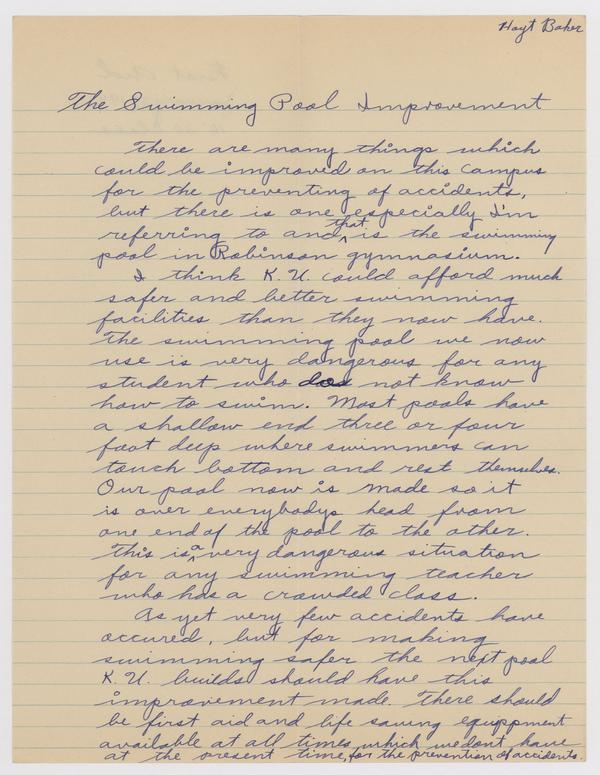 Hoyt Baker
The Swimming Pool Improvement
There are many things which
could be improved on this campus
for the preventing of accidents,
but there is one especially I'm
referring to and that is the swimming
pool in Robinson gymnasium.
I think K.U. could afford much
safer and better swimming
facilities than they now have.
The swimming pool we now
use is very dangerous for any
student who does not know
how to swim. Most pools have
a shallow end three or four
foot deep where swimmers can
touch bottom and rest themselves.
Our pool now is made so it
is over everybodys head from
one end of the pool to the other.
This is a very dangerous situation
for any swimming teacher
who has a crowded class.
As yet very few accidents have
occured, but for making
swimming safer the next pool
K.U. builds should have this
improvement made. There should
be first aid and life saving equippment
available at all times, which we dont have
at the present time, for the prevention of accidents.